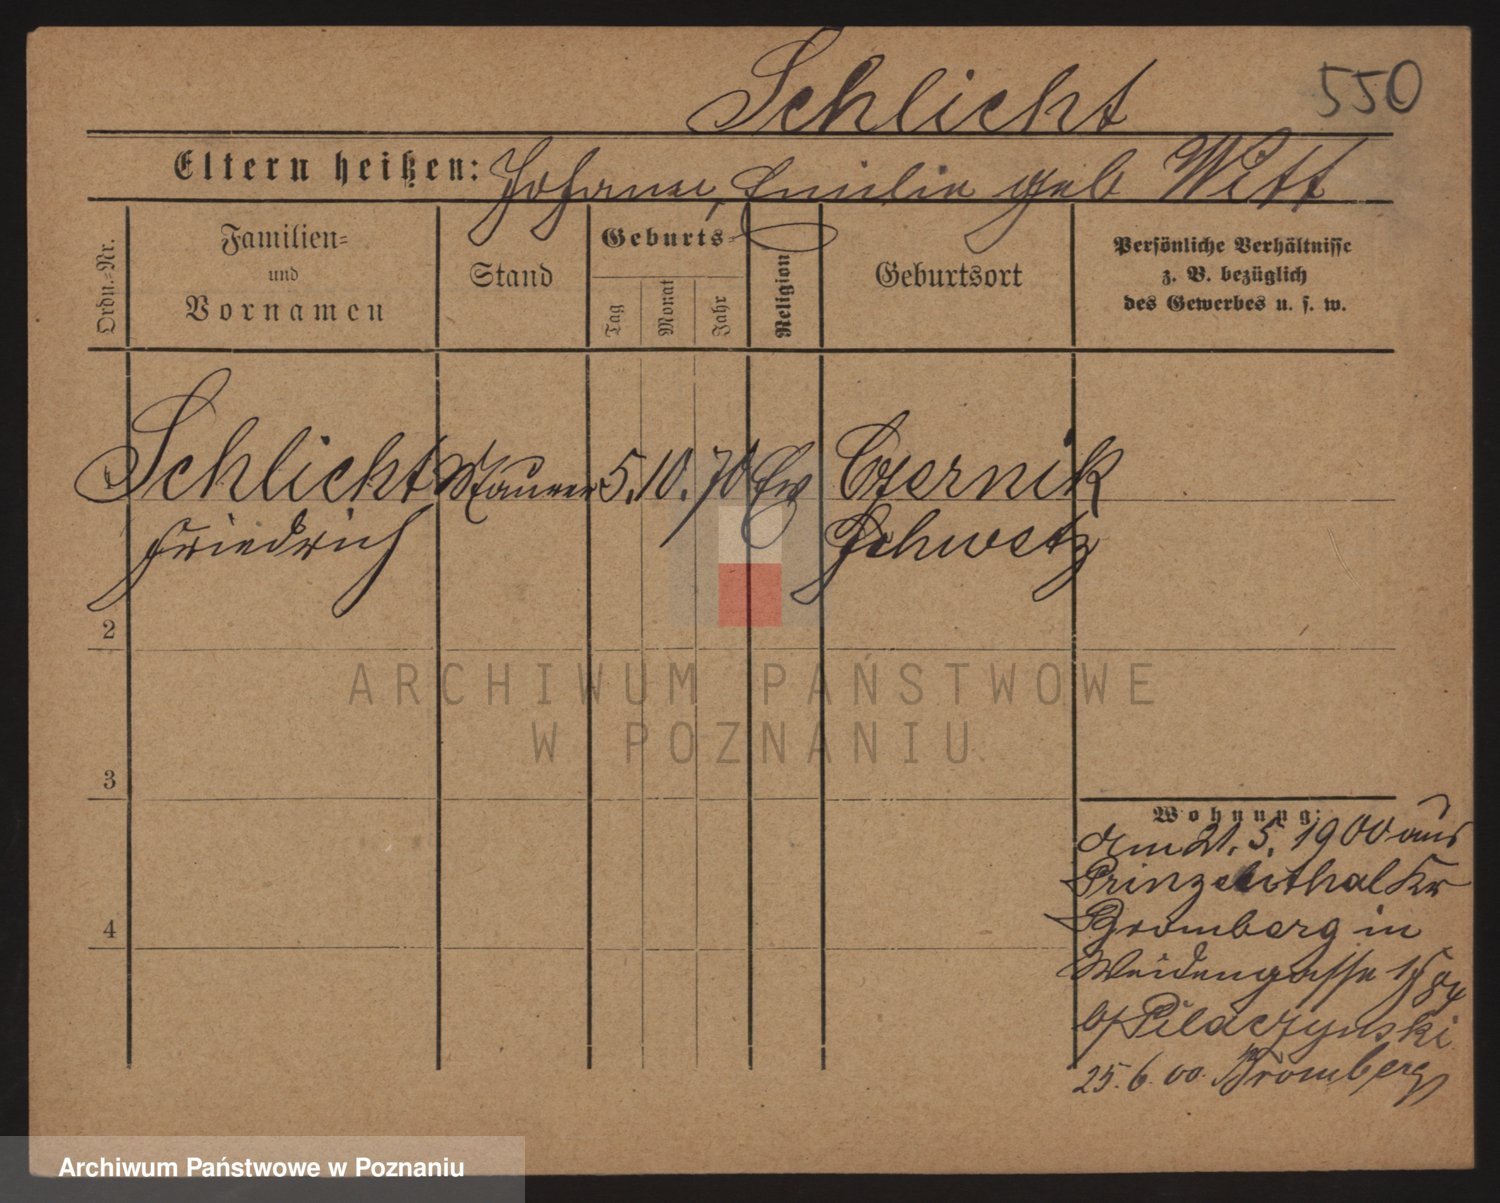 Schlicht
550
Eltern heißen: Johann, Emilie geb Witt
Ordn.-Nr.
Familien-
und
Vornamen
Stand
Geburts-
Tag
Monat
Jahr
Religion
Geburtsort
Persönliche Verhältnisse
z. B. bezüglich
des Gewerbes u. s. w.
1 Schlicht Maurer 5. 10. 70 Ev Czernik
Friedrich Schwetz
2
3
4
Wohnung:
am 21. 5. 1900 aus
Prinzenthal Kr
Bromberg in
Weidengasse
b/ Pilaczynski
25. 6. 00. Bromberg
ARCHIWUM PAŃSTWOWE
W POZNANIU
Archiwum Państwowe w Poznaniu